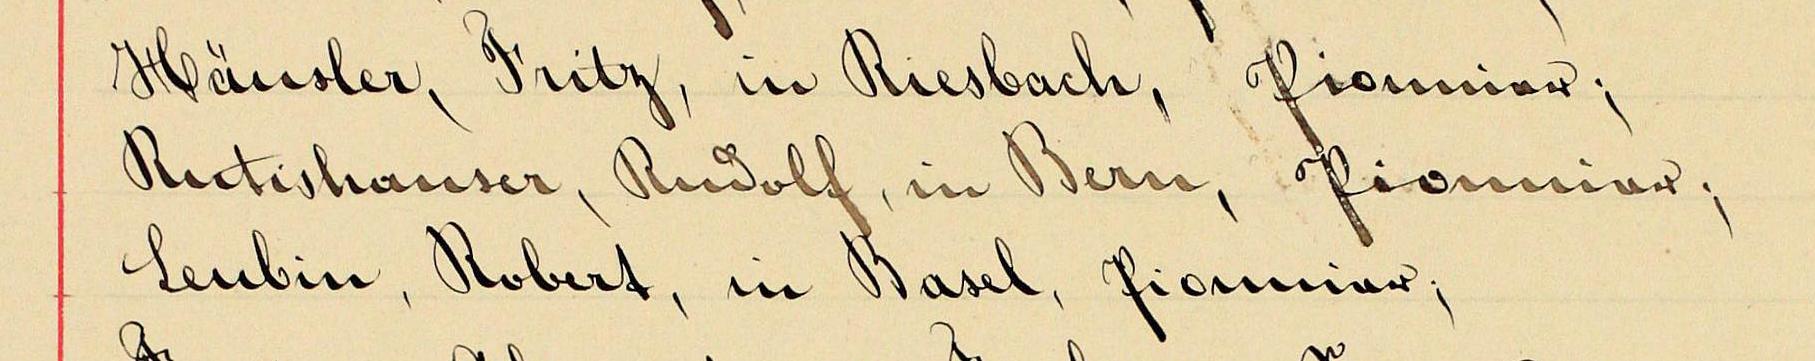 Häusler, Fritz, in Riesbach, Pionnier;
Rutishauser, Rudolf, in Bern, Pionnier;
Leubin, Robert, in Basel, Pionnier;